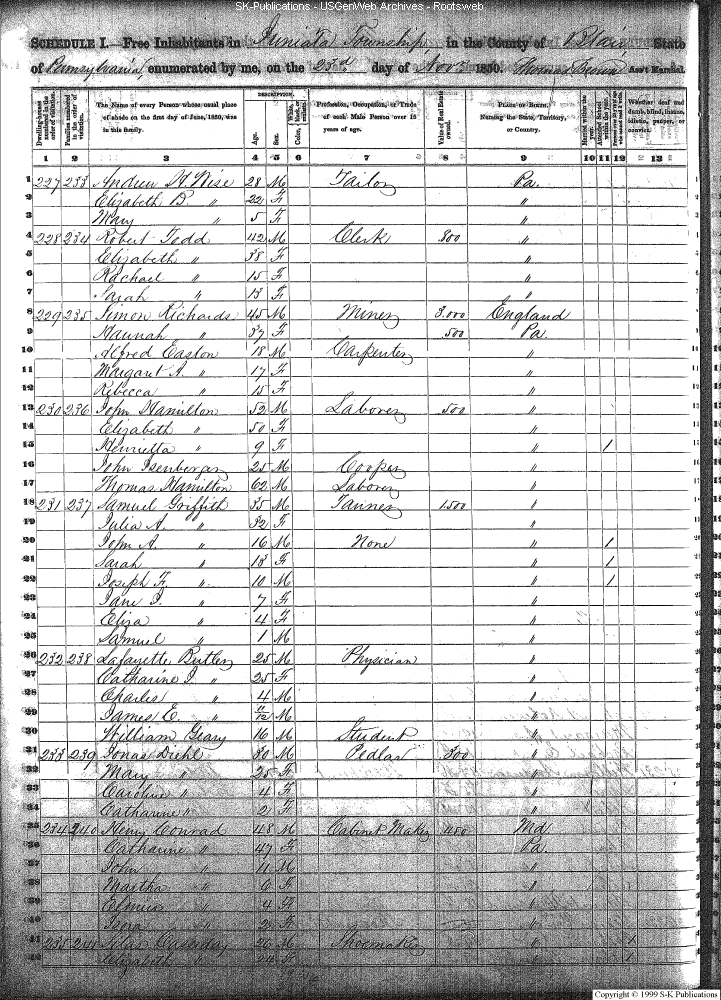 SK-Publications - USGenWeb Archives - Rootsweb
SCHEDULE I.—Free Inhabitants in Juniata Township in the County of Blair State
of Pennsylvania enumerated by me, on the 23rd day of Novr 1850. Thomas Ass't Marshal.
Dwelling-houses numbered in the order of visitation. Families numbered in the order of visitation. The Name of every Person whose usual place of abode on the first day of June, 1850, was in this family. DESCRIPTION. Age. Sex. Color, White, black, or mulatto. Profession, Occupation, or Trade of each Male Person over 15 years of age. Value of Real Estate owned. PLACE OF BIRTH, Naming the State, Territory, or Country. Married within the year. Attended School within the year. Persons over 20 y'rs of age who cannot read & write. Whether deaf and dumb, blind, insane, idiotic, pauper, or convict.
1 2 3 4 5 6 7 8 9 10 11 12 13
1 227 233 Andrew H. Wise 28 M Tailor Pa. 1
2 Elizabeth B " 22 F " 2
3 Mary " 5 F " 3
4 228 234 Robert Todd 42 M Clerk 800 " 4
5 Elizabeth " 38 F " 5
6 Rachael " 15 F " 6
7 Sarah " 13 F " 7
8 229 235 Simon Richards 45 M Miner 3.000 England 8
9 Hannah " 37 F 500 Pa. 9
10 Alfred Easton 18 M Carpenter " 10
11 Margaret A. " 17 F " 11
12 Rebecca " 15 F " 12
13 230 236 John Hamilton 52 M Laborer 500 " 13
14 Elizabeth " 50 F " 14
15 Henrietta " 9 F " 1 15
16 John Isenberg 25 M Cooper " 16
17 Thomas Hamilton 62 M Laborer " 17
18 231 237 Samuel Griffith 35 M Tanner 1500 " 18
19 Julia A. " 32 F " 19
20 John A. " 16 M None " 1 20
21 Sarah " 13 F " 1 21
22 Joseph F. " 10 M " 1 22
23 Jane I. " 7 F " 23
24 Eliza " 4 F " 24
25 Samuel " 1 M " 25
26 232 238 Lafayette Butler 25 M Physician " 26
27 Catharine I. " 25 F " 27
28 Charles " 4 M " 28
29 James E. " 11/12 M " 29
30 William Geary 16 M Student " 30
31 233 239 Jonas Diehl 30 M Pedlar 300 " 31
32 Mary " 25 F " 32
33 Caroline " 4 F " 33
34 Catharine " 2 F " 34
35 234 240 Henry Conrad 48 M Cabinet Maker Md. 35
36 Catharine " 47 F Pa. 36
37 John " 11 M " 37
38 Martha " 6 F " 38
39 " 4 F " 39
40 " 2 F " 40
41 235 241 Silas Cassiday 26 M Shoemaker " 1 41
42 Elizabeth " 24 F " 1 42
Copyright © 1999 S-K Publications